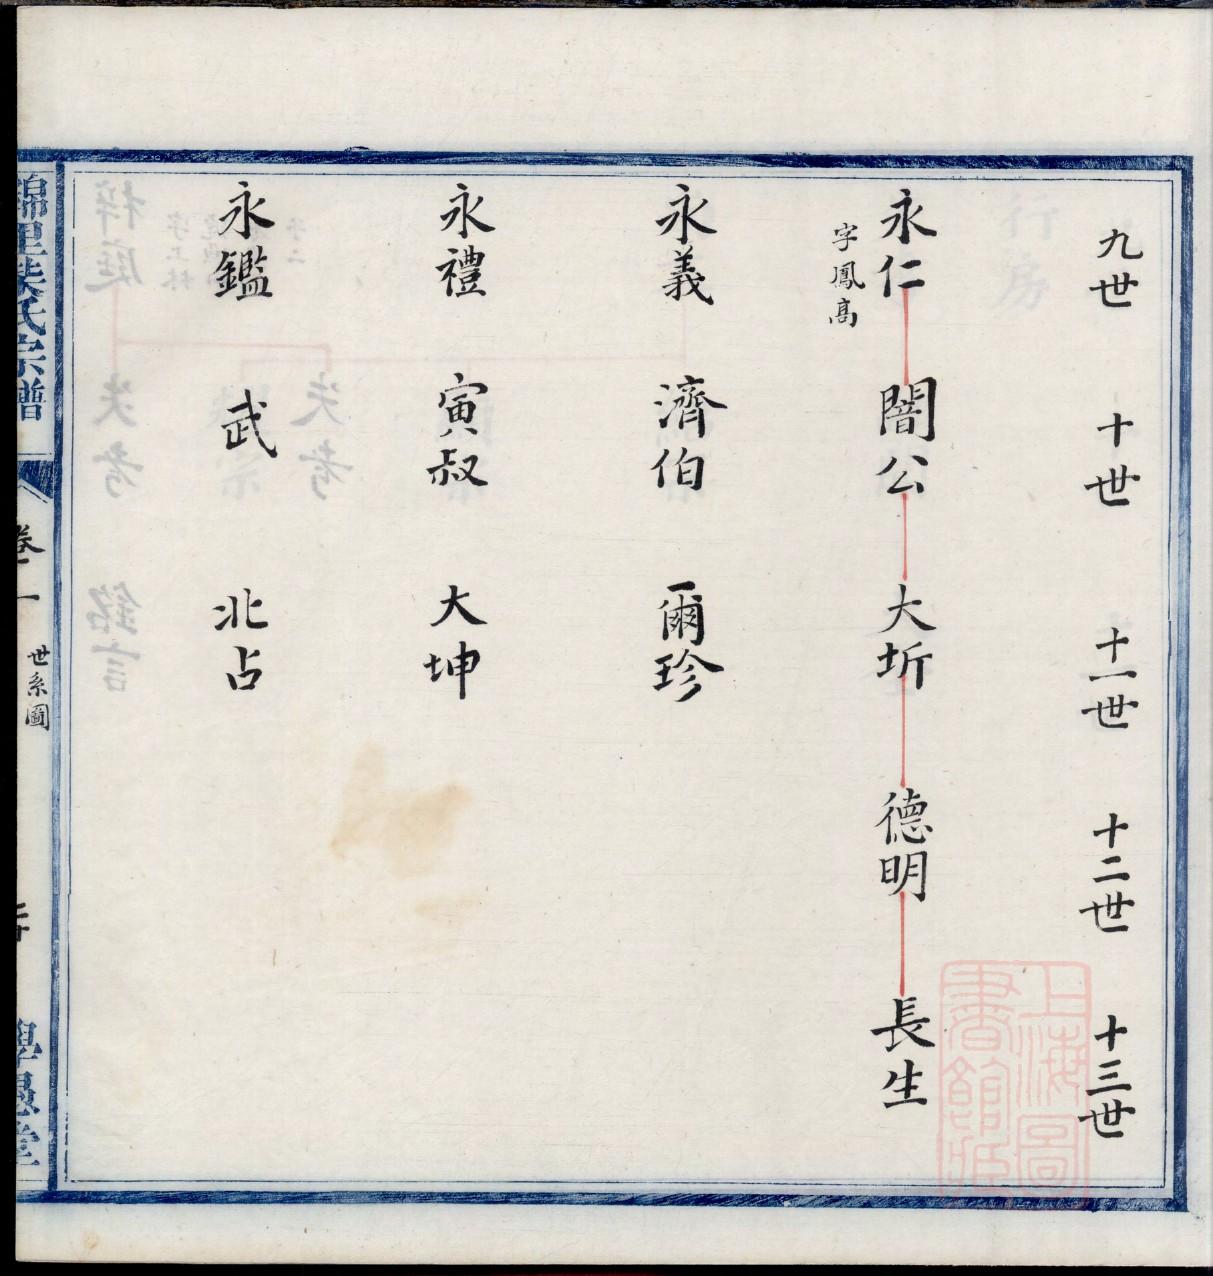 九世
十世
十一世
十二世
十三世
永仁
字鳳高
闇公
大圻
德明
長生
永義
濟伯
爾珍
永禮
寅叔
大坤
永鑑
武
北占
氏宗譜
卷一
世系圖
上海圖
書館